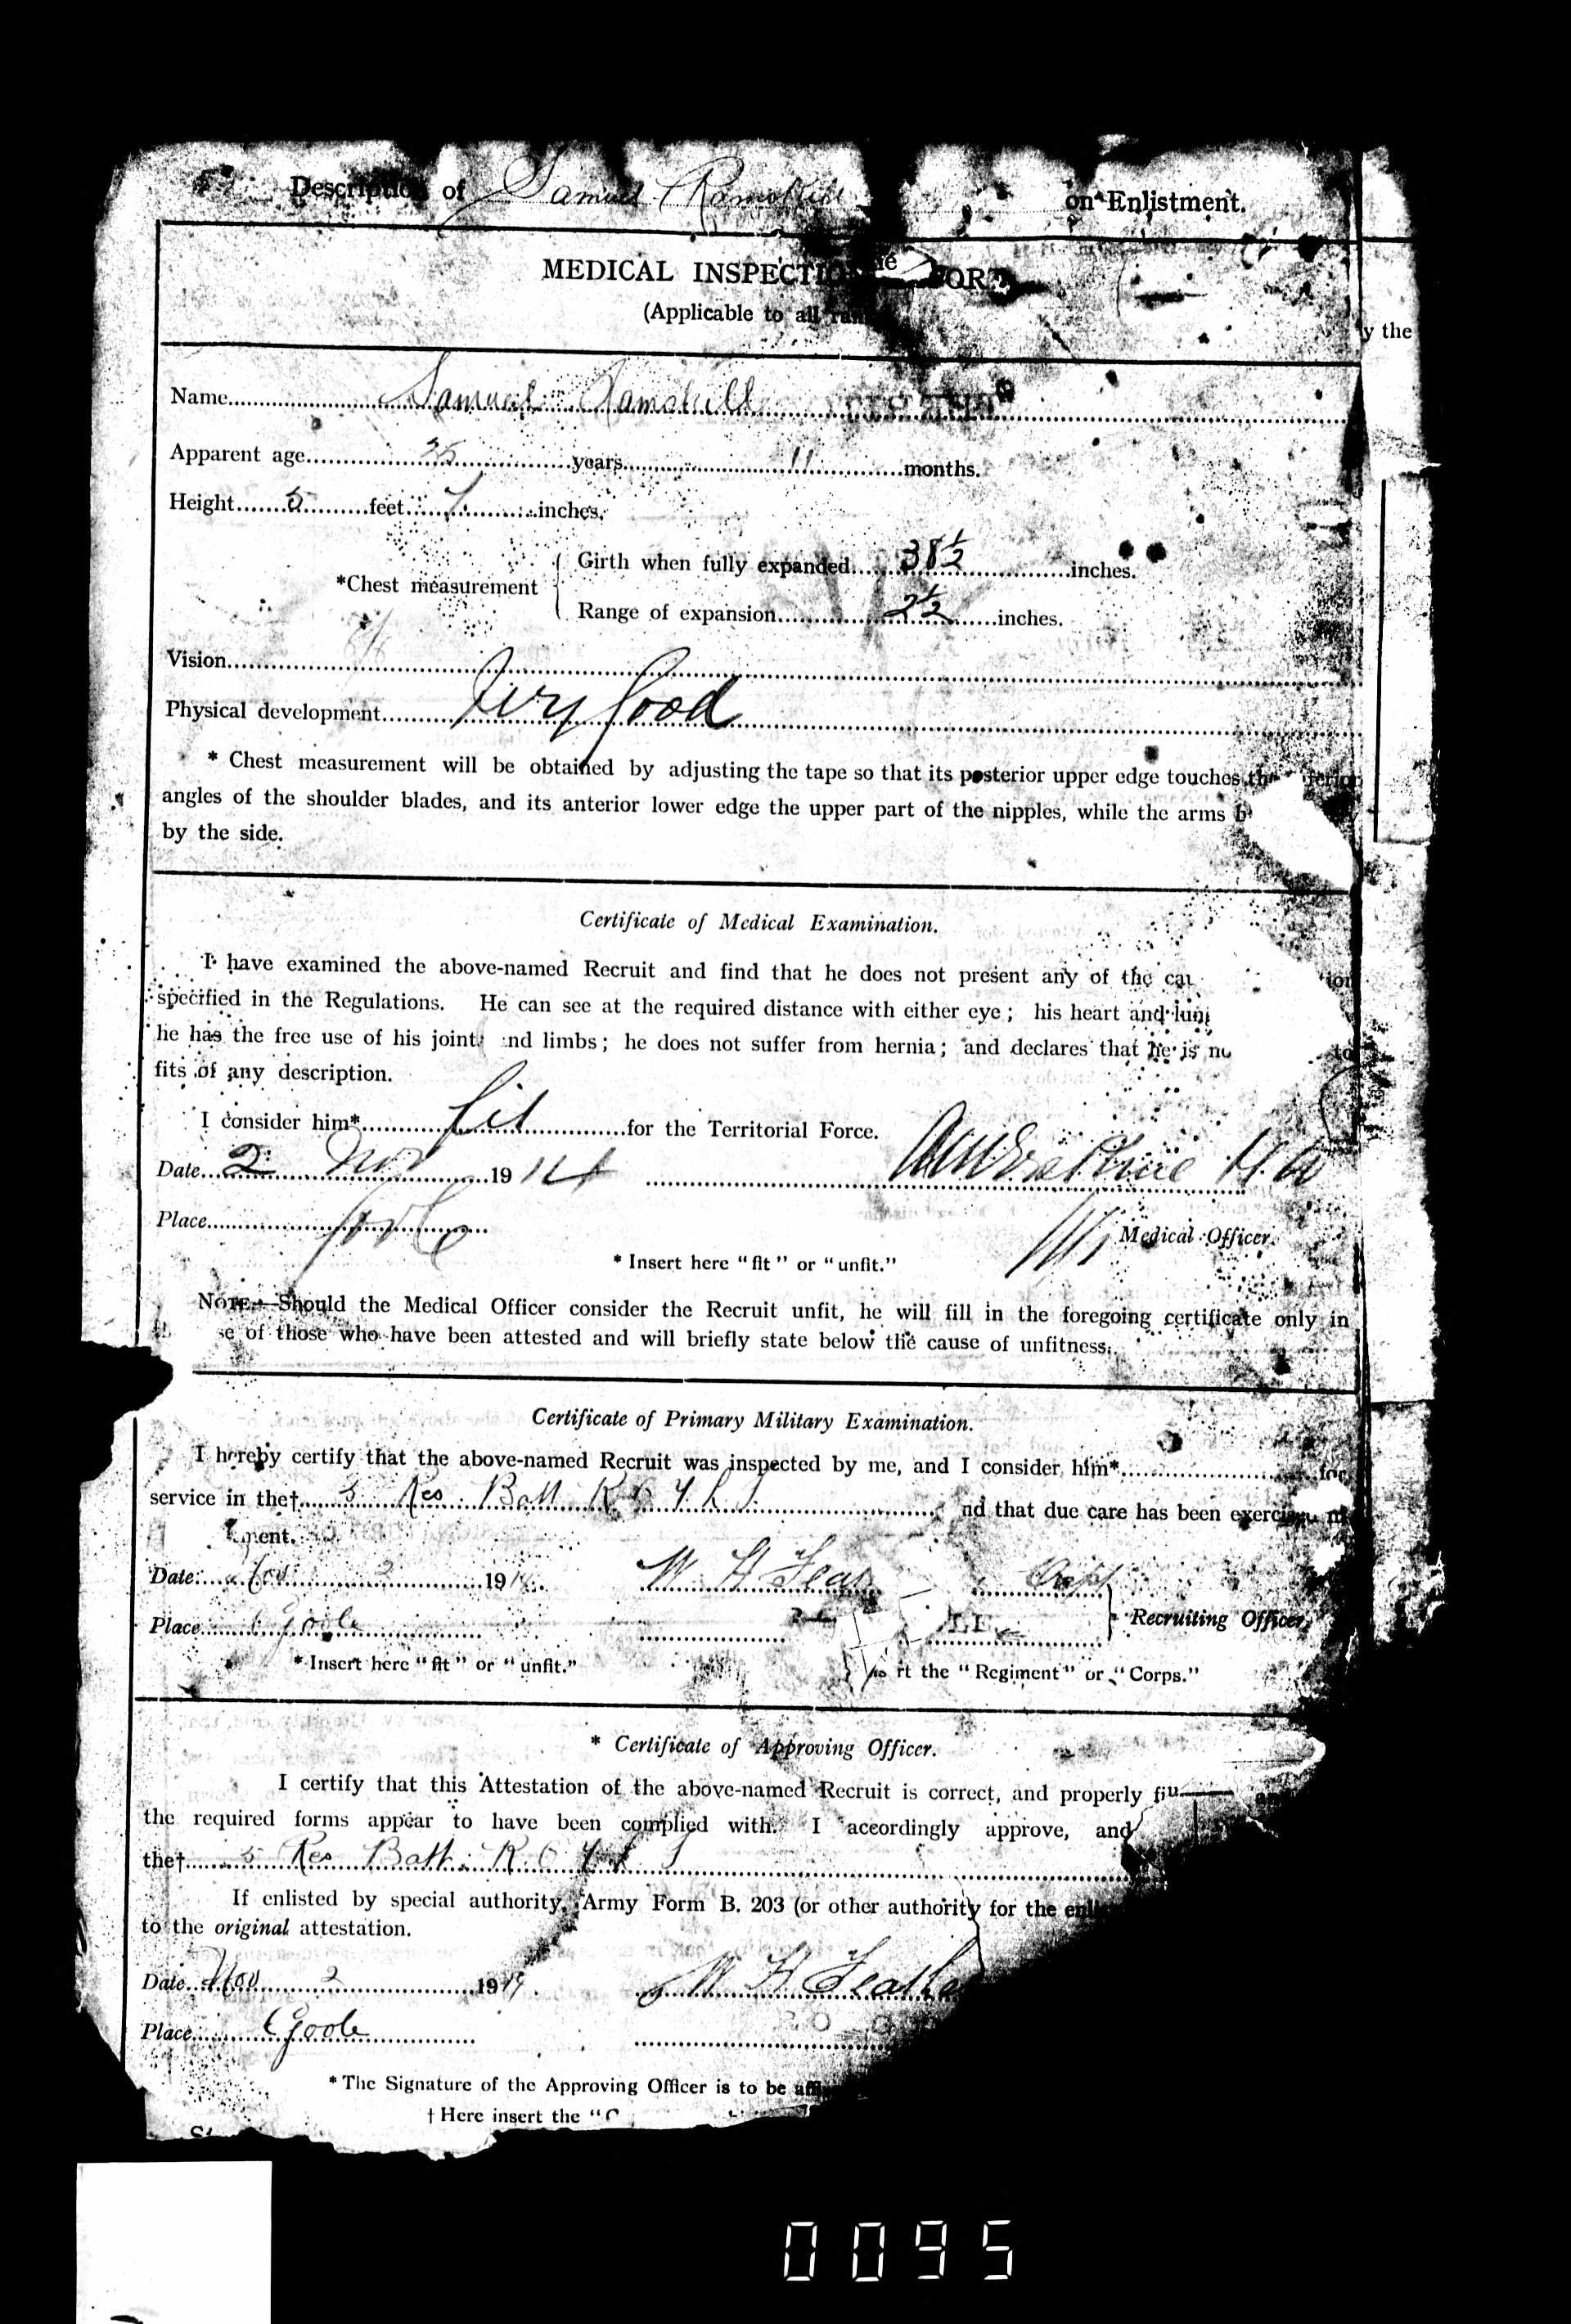 Description of Samuel Ramskill on Enlistment.
MEDICAL INSPECTIO
(Applicable to all ran
y the
Name Samuel Ramskill
Apparent age 35 years 11 months.
Height 5 feet 7 inches.
*Chest measurement
Girth when fully expanded 38½ inches.
Range of expansion 2½ inches.
Vision
Physical development Very Good
* Chest measurement will be obtained by adjusting the tape so that its posterior upper edge touches
angles of the shoulder blades, and its anterior lower edge the upper part of the nipples, while the arms
by the side.
Certificate of Medical Examination.
I have examined the above-named Recruit and find that he does not present any of the cau
specified in the Regulations. He can see at the required distance with either eye; his heart and lung
he has the free use of his joint nd limbs; he does not suffer from hernia; and declares that he is no
fits of any description.
I consider him* fit for the Territorial Force.
Date 2 Nov 1914
Place
Medical Officer.
* Insert here "fit" or "unfit."
NOTE.—Should the Medical Officer consider the Recruit unfit, he will fill in the foregoing certificate only in
se of those who have been attested and will briefly state below the cause of unfitness.
Certificate of Primary Military Examination.
I hereby certify that the above-named Recruit was inspected by me, and I consider him* for
service in the† 5 Res Batt K O Y L I nd that due care has been
ment.
Date Nov 2 1914 W H Feat Capt
Place Goole Recruiting Officer.
* Insert here "fit" or "unfit." rt the "Regiment" or "Corps."
* Certificate of Approving Officer.
I certify that this Attestation of the above-named Recruit is correct, and properly
the required forms appear to have been complied with. I accordingly approve, and
the† 5 Res Batt. K O Y L I
If enlisted by special authority, Army Form B. 203 (or other authority for the enl
to the original attestation.
Date Nov 2 1914 W H Feathe
Place Goole
* The Signature of the Approving Officer is to be aff
† Here insert the "C
0095